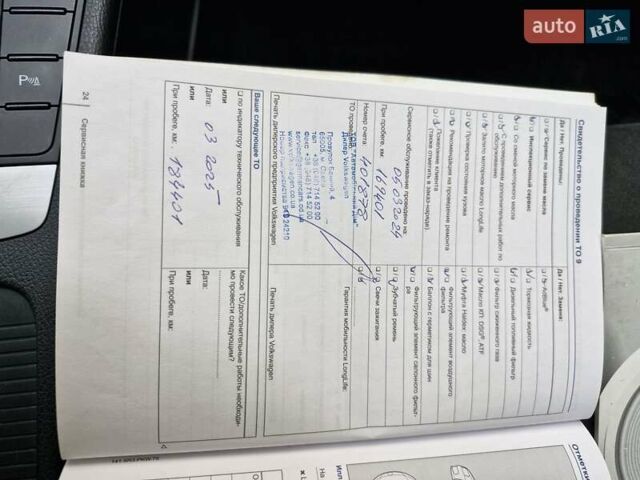 auto RIA.com
P
24 | Сервисная книжка
Свидетельство о проведении ТО 9
Да / Нет: Проведены:
Сервис по замене масла
Инспекционный сервис
Со сменой моторного масла
С проведением дополнительных работ по обслуживанию
Залито моторное масло LongLife
Проверка состояния кузова
Рекомендация по проведению ремонта
Пожелание клиента
(также отметить в заказ-наряде).
Сервисное обслуживание проведено на:
05 03 2024
При пробеге, км: 169401
Номер счета: 401878
ТО проведено:
Дилер Volkswagen
65005, м. Одеса
тел. +38 (048) 714 52 00
факс +38 (048) 714 52 00
Печать дилерского предприятия Volkswagen
Да / Нет: Замена:
AdBlue®
Тормозная жидкость
Дизельный топливный фильтр
фильтр сжиженного газа
Масло КП: DSG®, ATF
Муфта Haldex: масло
Фильтрующий элемент воздушного фильтра
Баллон с герметиком для шин
Фильтрующий элемент салонного фильтра
Зубчатый ремень
Свечи зажигания
Гарантия мобильности LongLife:
Печать дилера Volkswagen
Ваше следующее ТО
по индикатору технического обслуживания
или
Дата: 03 2025
или
При пробеге, км: 184401
Какое ТО/дополнительные работы необходимо провести следующим?
Дата:
При пробеге, км:
Отметки